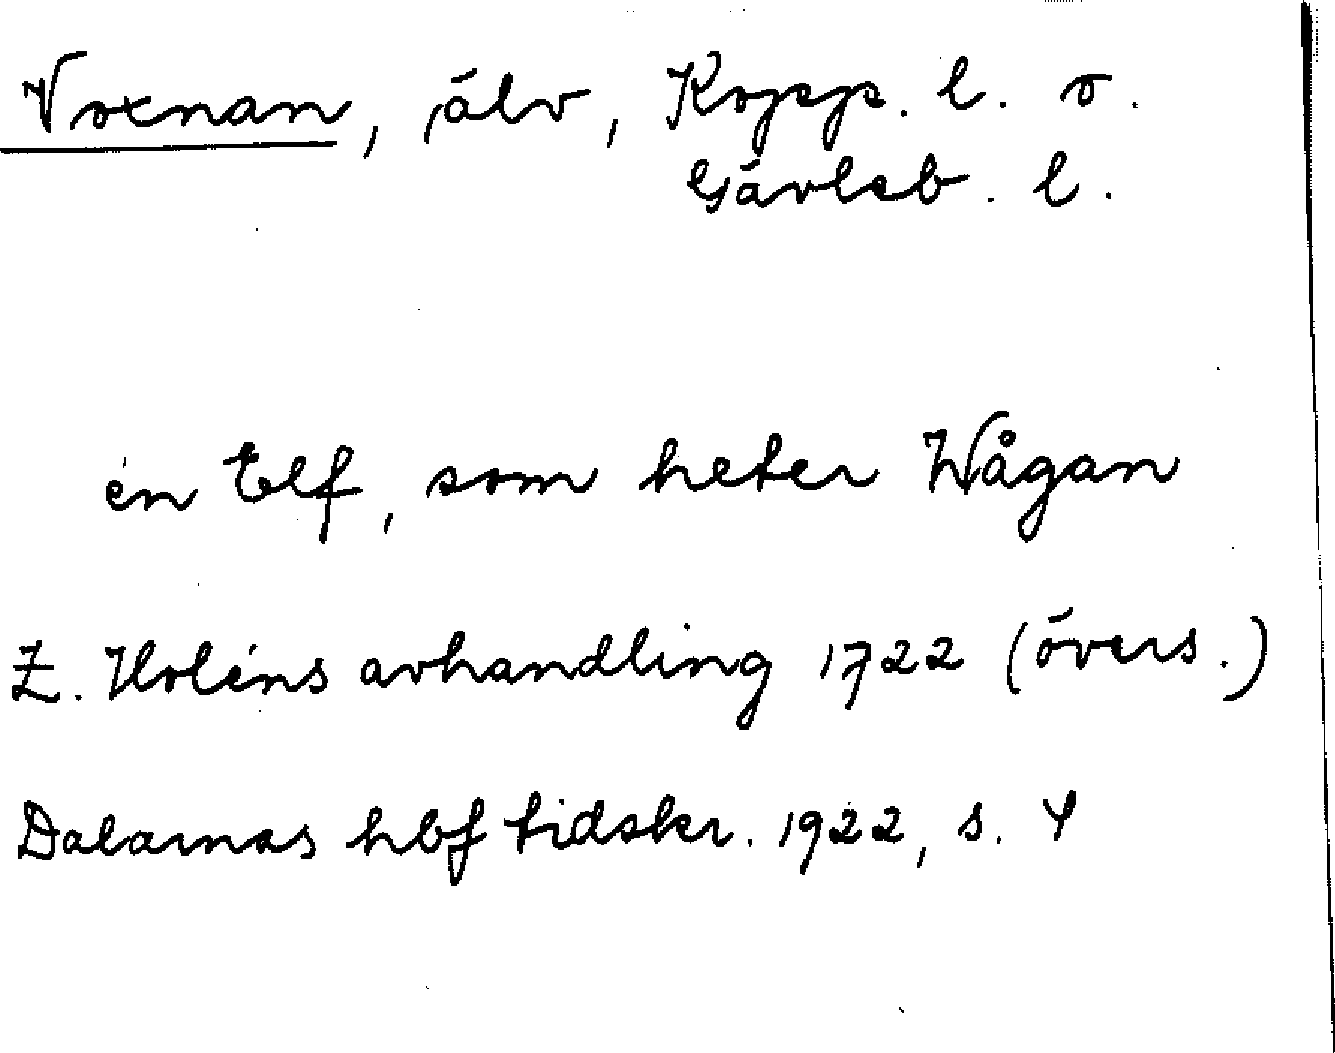 Voxnan, älv, Kopp. l. o.
Gävleb. l.
en Elf, som heter Wågan
Z. Holéns avhandling 1722 (övers.)
Dalarnas hbf tidskr. 1922, s. 4